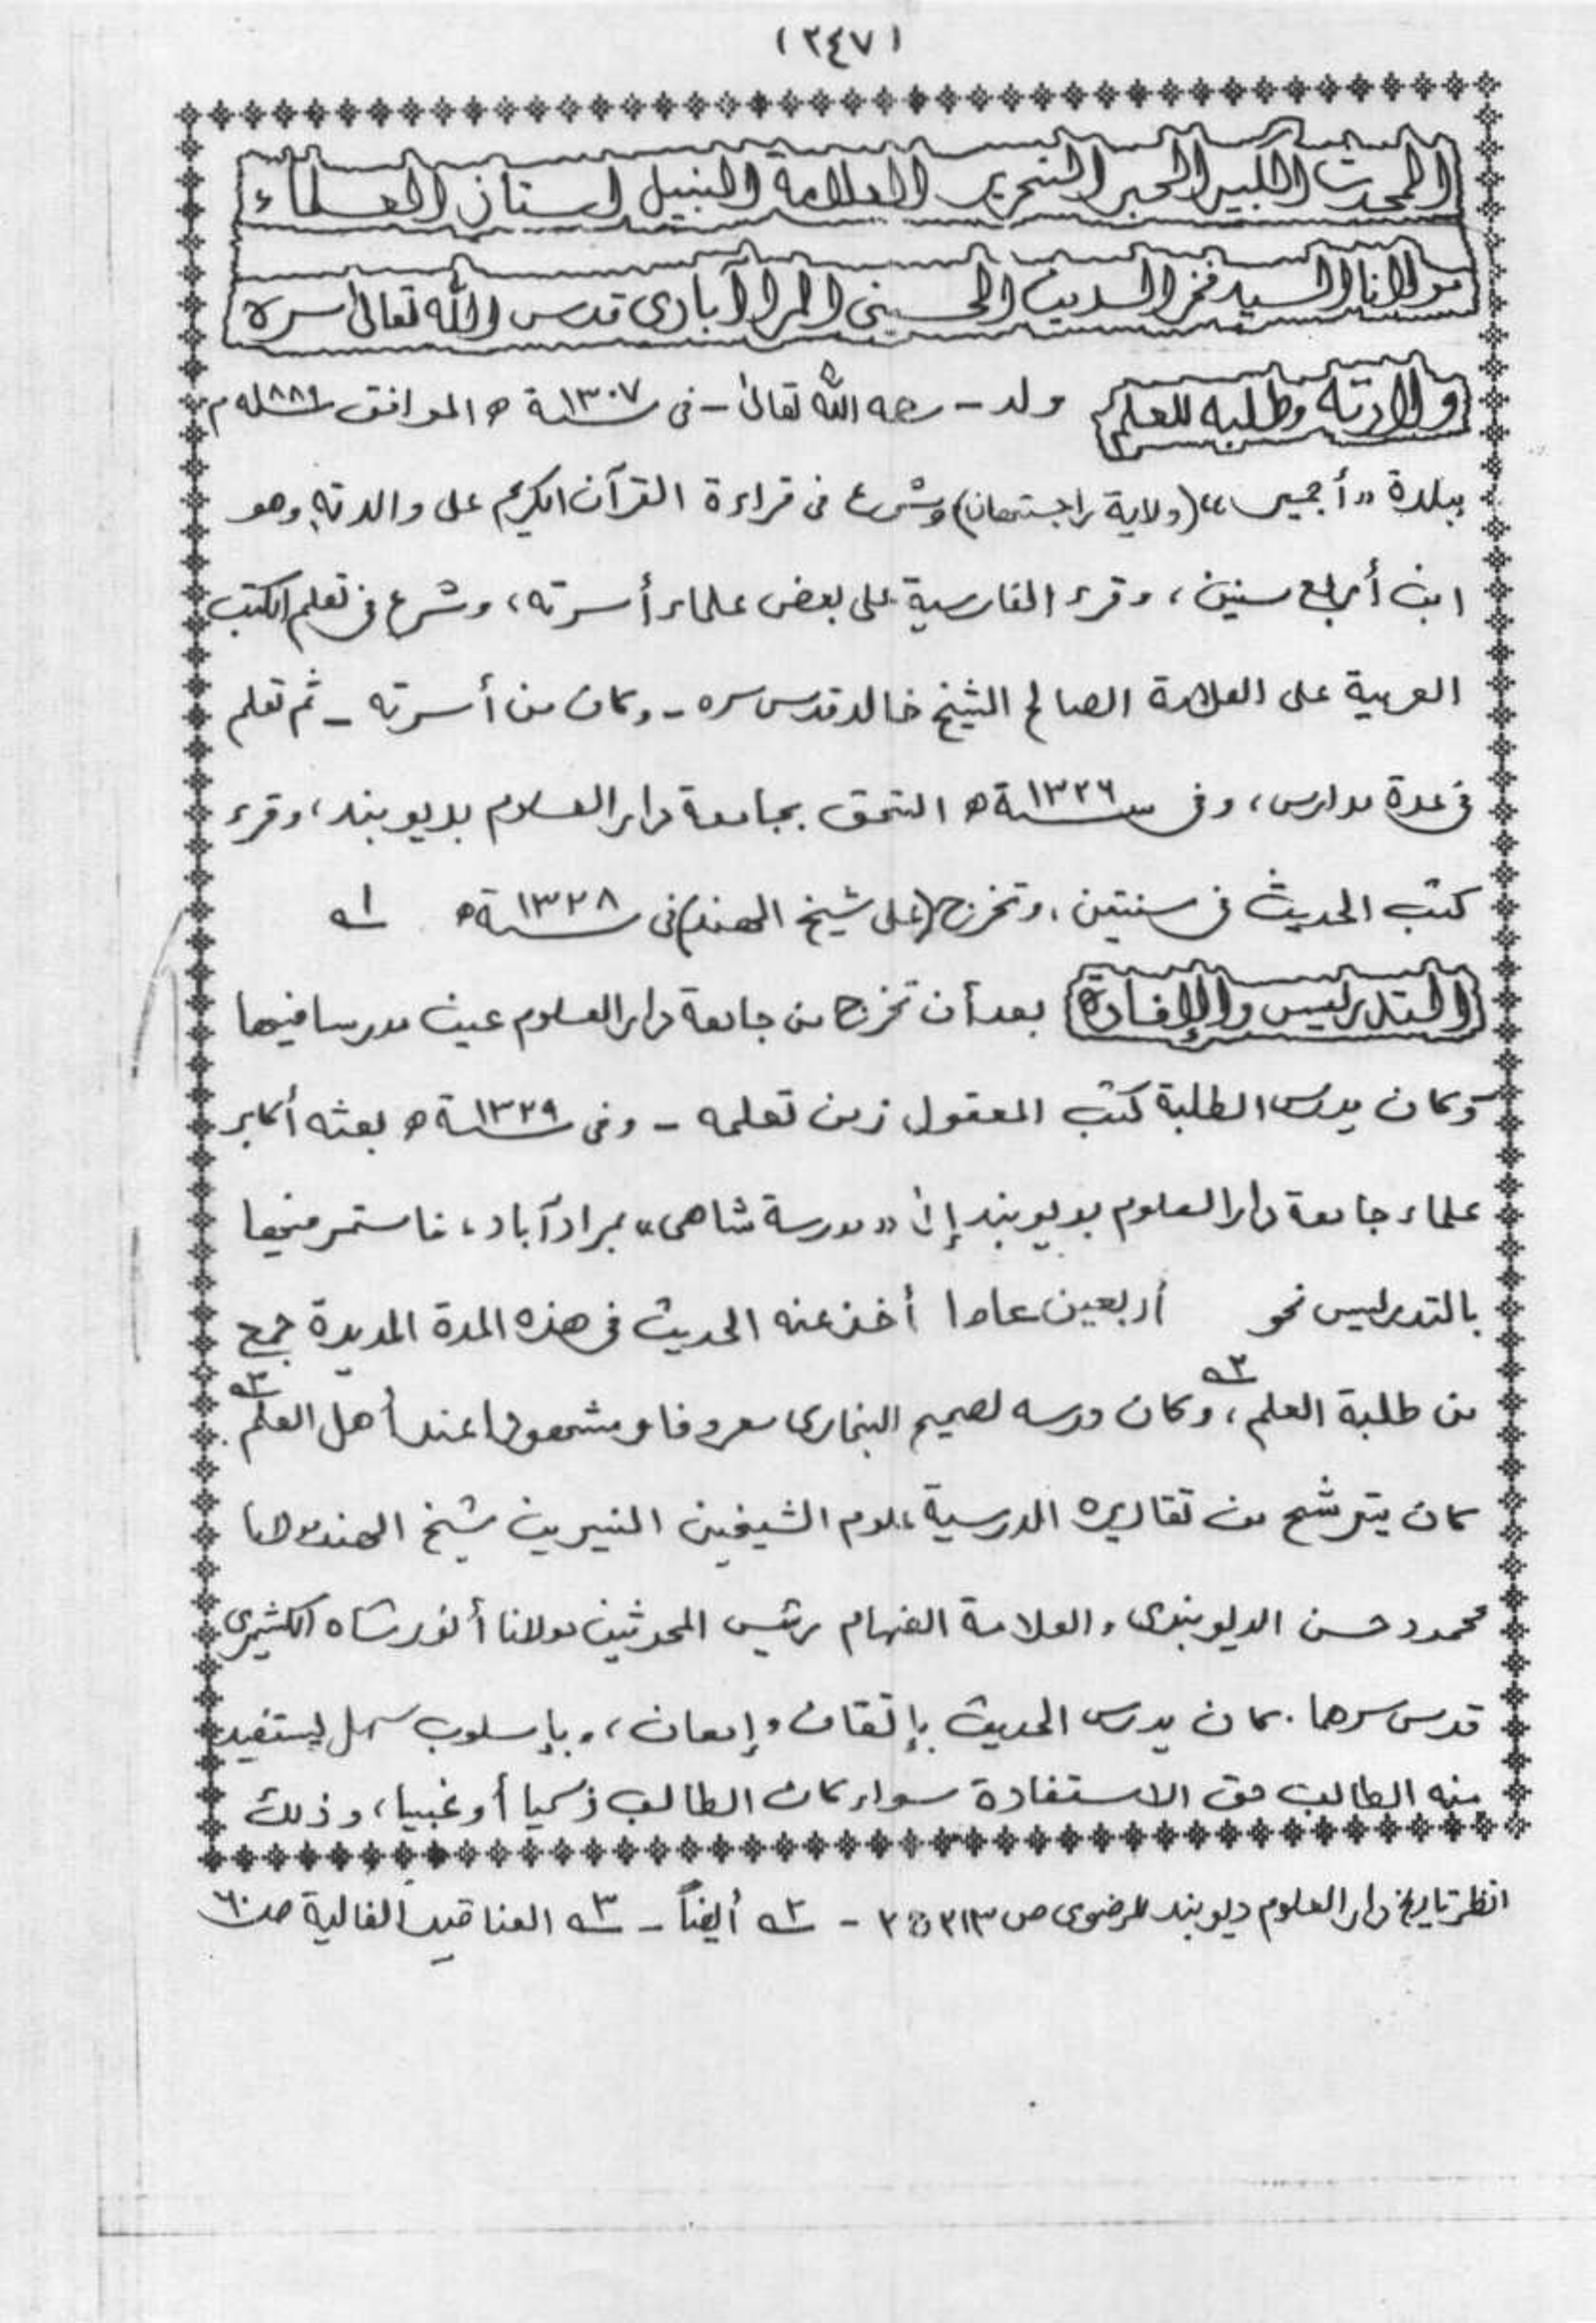 (٢٤٧)
المحدث الكبير الحبر النحرير العلامة النبيل استاذ العلماء
مولانا السيد فخر الدين الحسينى المرادآبادى قدس الله تعالىٰ سره
ولادته وطلبه للعلم ولد - رحمه الله تعالىٰ - فى سنة ١٣٠٧ه الموافق ١٨٨٩م
ببلدة «أجمير» (ولاية راجستهان) وشرع فى قراءة القرآن الكريم على والدته وهو
ابن أربع سنين، وقرء الفارسية على بعض علماء أسرته، وشرع فى تعلم الكتب
العربية على العلامة الصالح الشيخ خالد قدس سره - وكان من أسرته - ثم تعلم
فى عدة مدارس، وفى سنة ١٣٢٦ه التحق بجامعة دار العلوم بديوبند، وقرء
كتب الحديث فى سنتين، وتخرج (على شيخ الهند) فى سنة ١٣٢٨ه ١ه
التدريس والإفادة بعد أن تخرج من جامعة دار العلوم عين مدرسا فيها
وكان يدرس الطلبة كتب المعقول زمن تعلمه - وفى سنة ١٣٢٩ه بعثه أكابر
علماء جامعة دار العلوم بديوبند إلىٰ «مدرسة شاهى» بمرادآباد، فاستمر فيها
بالتدريس نحو أربعين عاما أخذ عنه الحديث فى هذه المدة المديدة جمع
من طلبة العلم ٢ه، وكان درسه لصحيح البخارى معروفا ومشهورا عند أهل العلم ٣ه.
كان يترشح من تقاريره الدرسية علوم الشيخين النيرين شيخ الهند مولانا
محمود حسن الديوبندى والعلامة الفهام رئيس المحدثين مولانا أنور شاه الكشميرى
قدس سرهما. كان يدرس الحديث بإتقان وإمعان، وبإسلوب سهل ليستفيد
منه الطالب حق الاستفادة سواء كان الطالب ذكيا أو غبيا، وذلك
انظر تاريخ دار العلوم ديوبند للرضوى ص ٢١٣ ج ٢ - ٢ه أيضاً - ٣ه العناقيد الغالية ص ٦٠